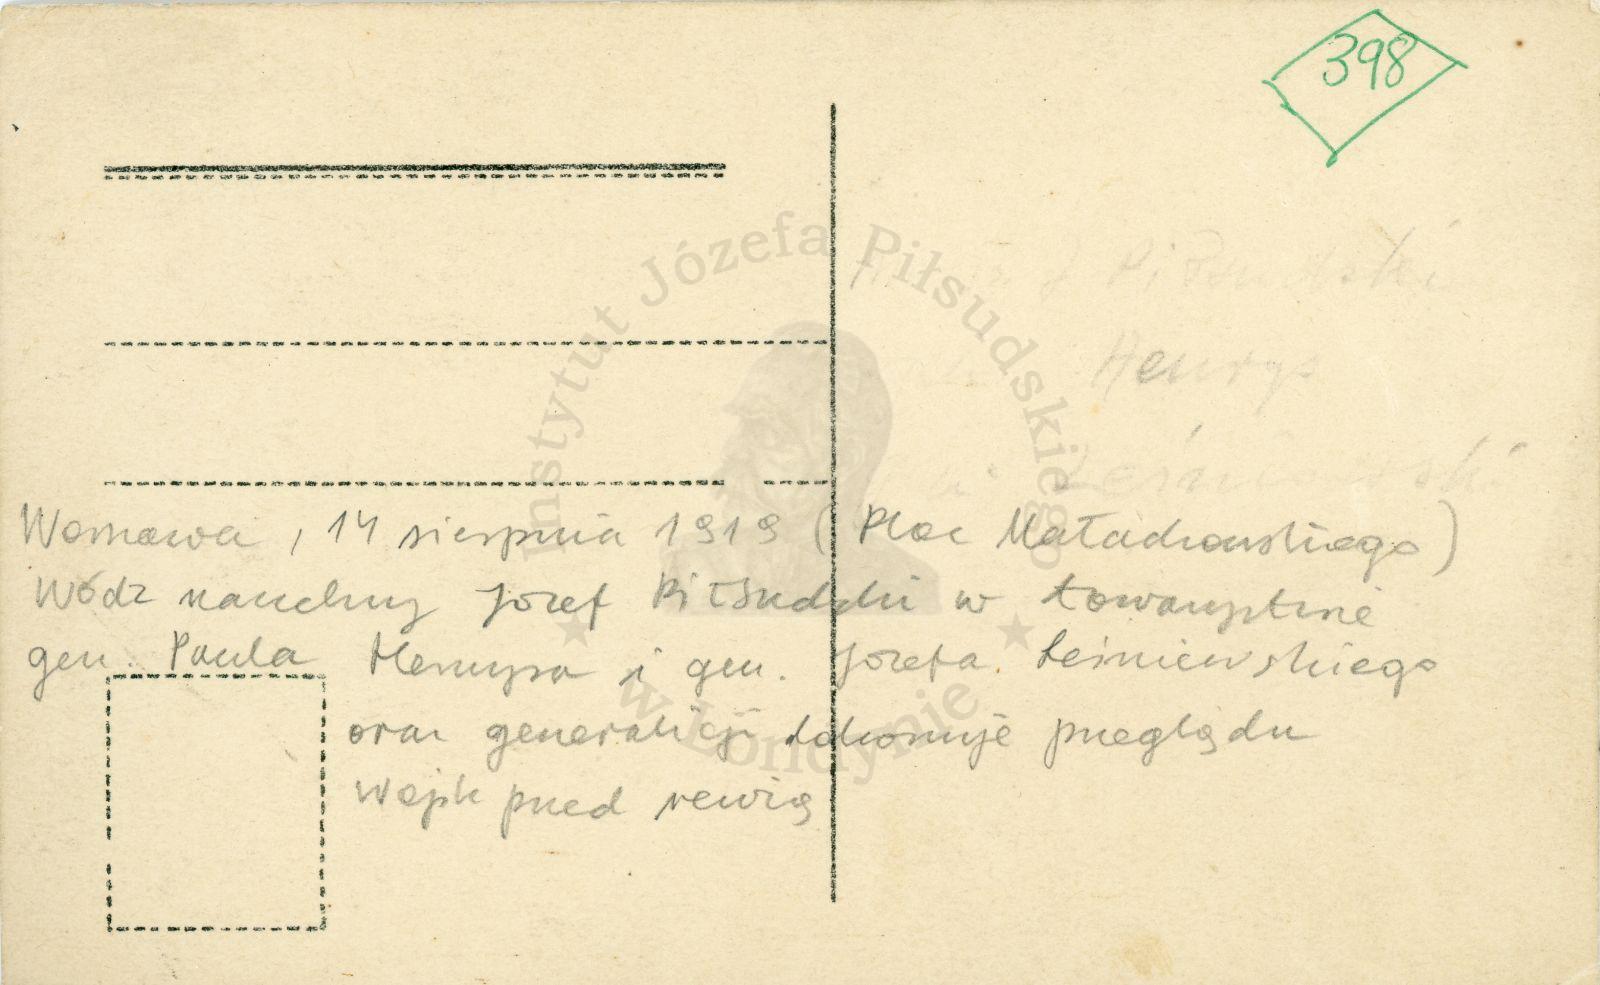 398
Instytut Józefa Piłsudskiego
w Londynie
J Piłsudski
Henrys
Leśniewski
Warszawa, 14 sierpnia 1919 (Plac Małachowskiego)
Wódz naczelny Józef Piłsudski w towarzystwie
gen. Paula Henrysa i gen. Józefa Leśniewskiego
oraz generalicji dokonuje przeglądu
wojsk przed rewią